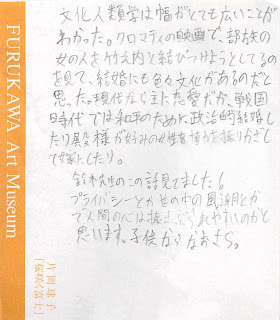 文化人類学は幅がとても広いことが
わかった。クロスティの映画で、部族の
女の人を竹之内と結びつけようとしてるの
を見て、結婚にも色々文化があるのだと
思った。現代なら主に恋愛だが、戦国
時代では和平のために政治的結婚し
たり殿様が好みの女性を
て嫁にしたり。
鈴木先生のこの話見てました!
プライバシーとか世の中の風潮とか
で人間の心は
思います。子供ならなおさら。
FURUKAWA Art Museum
片岡球子
「桜咲く富士」